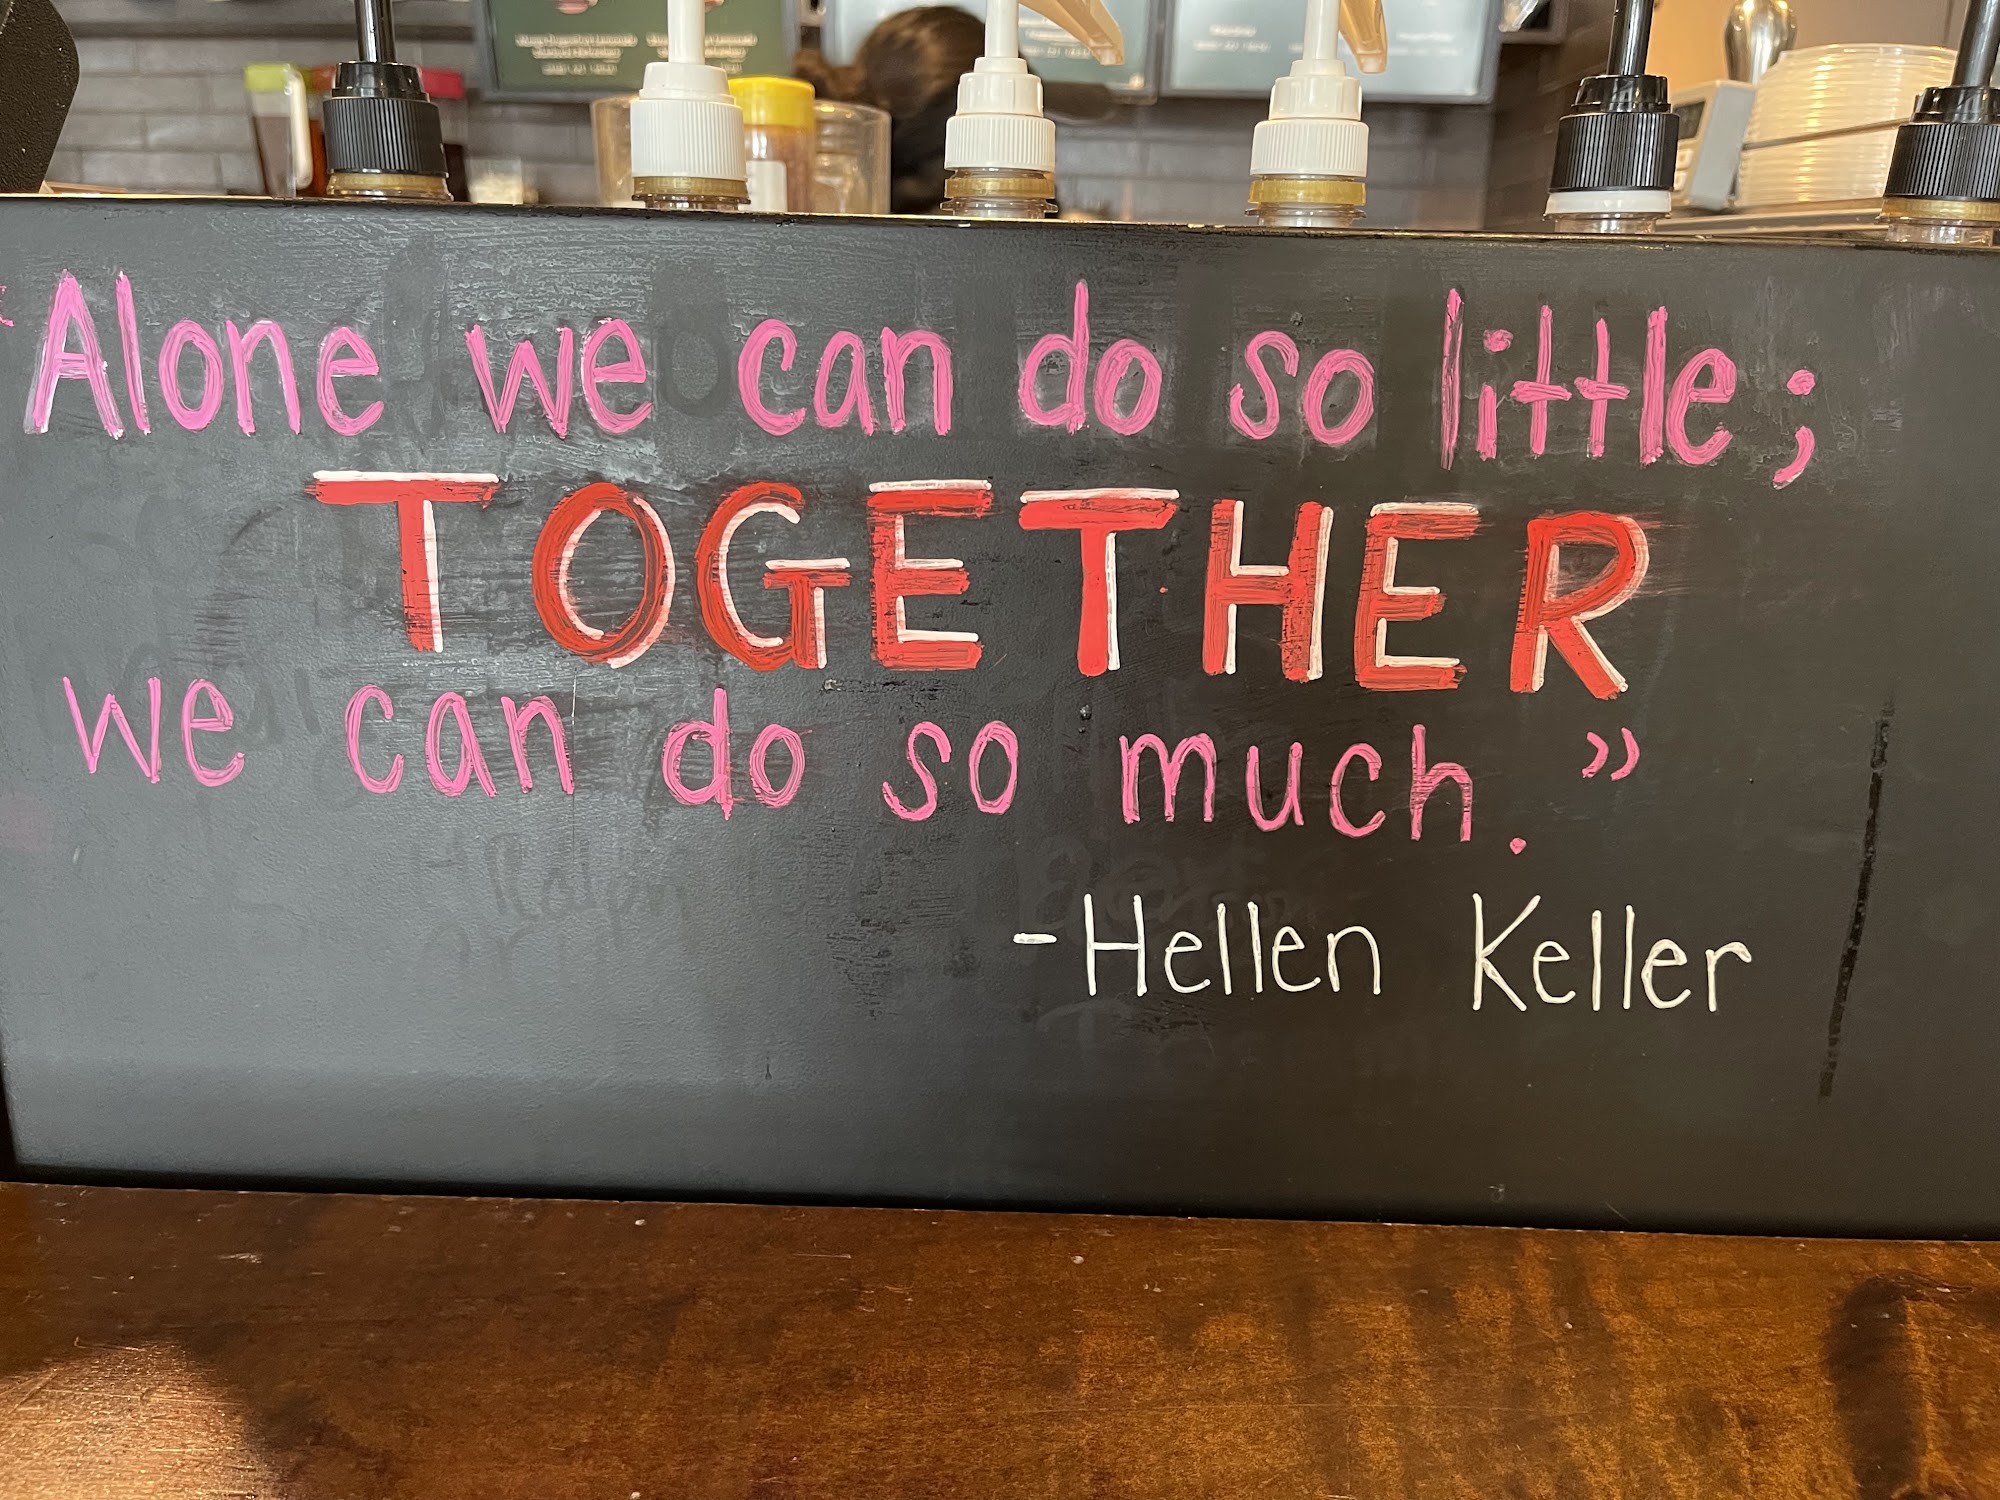 "Alone we can do so little;
TOGETHER
we can do so much."
-Hellen Keller